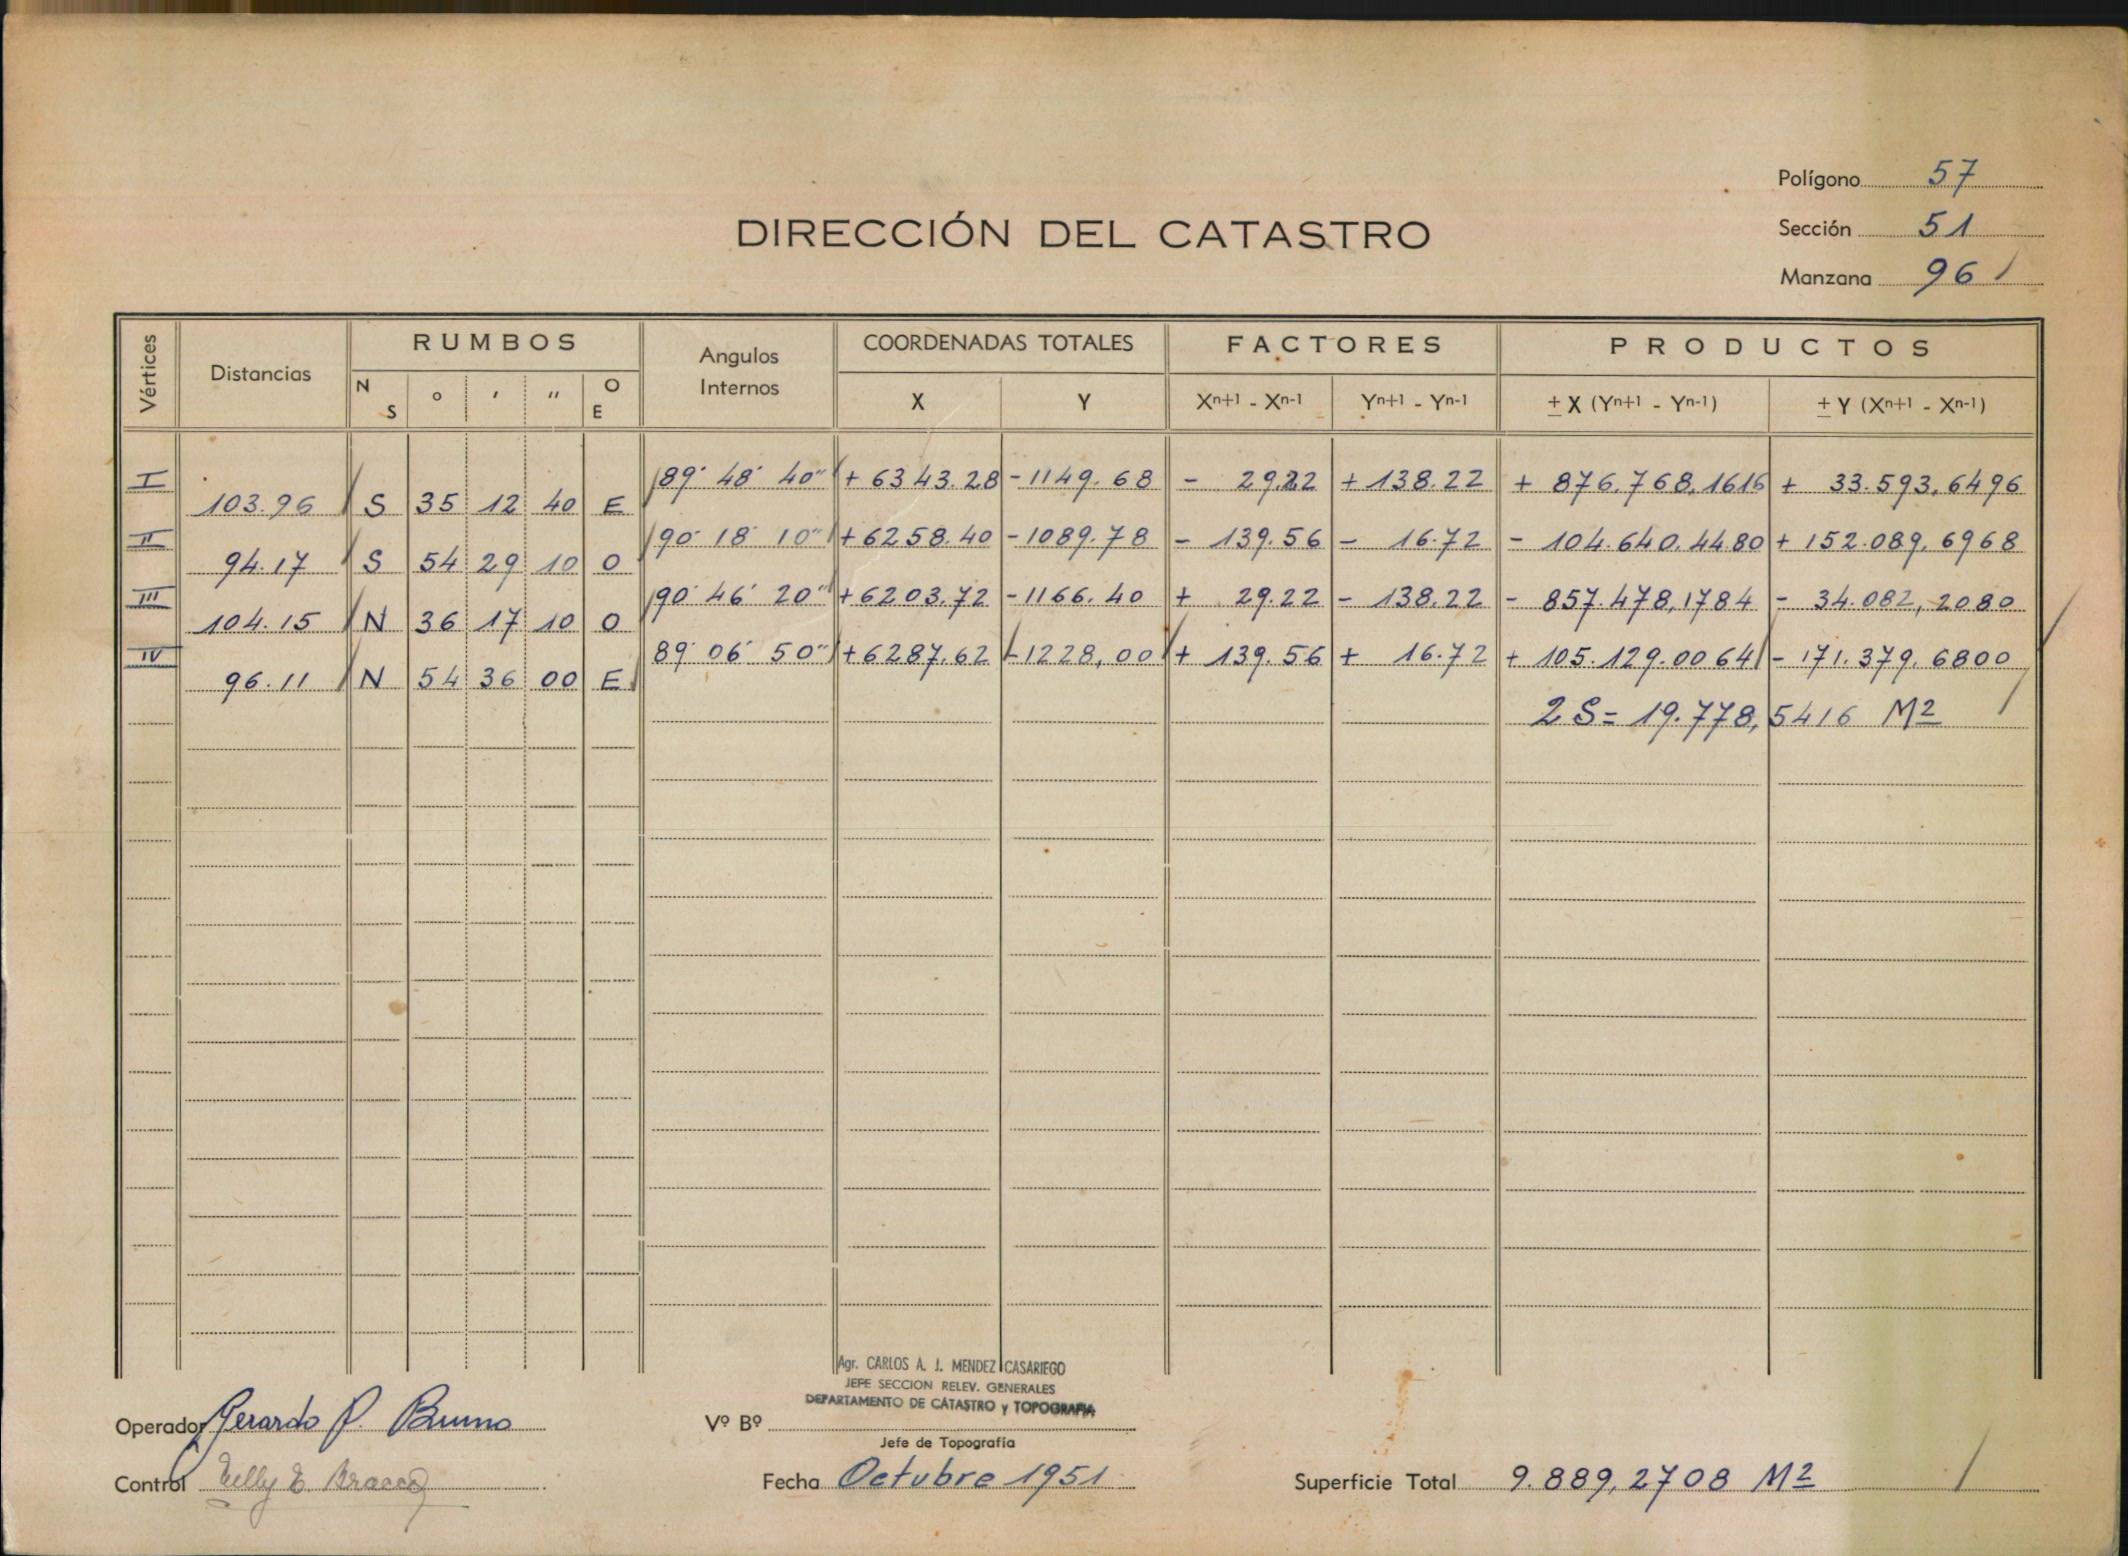 Polígono 57
DIRECCIÓN DEL CATASTRO
Sección 51
Manzana 96
Vértices Distancias RUMBOS Angulos Internos COORDENADAS TOTALES FACTORES PRODUCTOS
N S ° ′ ″ O E X Y Xⁿ⁺¹ - Xⁿ⁻¹ Yⁿ⁺¹ - Yⁿ⁻¹ ± X (Yⁿ⁺¹ - Yⁿ⁻¹) ± Y (Xⁿ⁺¹ - Xⁿ⁻¹)
I 89° 48' 40" + 6343.28 - 1149.68 - 29.22 + 138.22 + 876.768,1616 + 33.593,6496
103.96 S 35 12 40 E
II 90° 18' 10" + 6258.40 - 1089.78 - 139.56 - 16.72 - 104.640.4480 + 152.089,6968
94.17 S 54 29 10 O
III 90° 46' 20" + 6203.72 - 1166.40 + 29.22 - 138.22 - 857.478,1784 - 34.082,2080
104.15 N 36 17 10 O
IV 89° 06' 50" + 6287.62 - 1228,00 + 139.56 + 16.72 + 105.129.0064 - 171.379,6800
96.11 N 54 36 00 E
2 S = 19.778,5416 M²
Agr. CARLOS A. J. MENDEZ CASARIEGO
JEFE SECCION RELEV. GENERALES
DEPARTAMENTO DE CATASTRO y TOPOGRAFIA
Operador Gerardo P. Bruno
Vº Bº
Jefe de Topografía
Control E. Bracco
Fecha Octubre 1951
Superficie Total 9.889,2708 M²